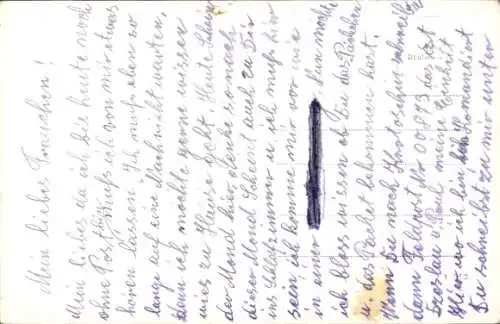 Mein liebes Frauchen!
Mein liebes da ich bis heute noch
ohne Post bin muß ich von mir etwas
hören lassen. Ich muß eben so
lange auf eine Nachricht warten,
denn ich möchte gerne wissen
wies zu Hause geht. Heute scheint
der Mond hier, denke so nach
dieser Mond scheint auch zu Dir
ins Schlafzimmer u. ich muß hier
sein, ich komme mir vor wie
in einer
ich bloss wissen ob Du das
u. das Packet bekommen hast.
Wenn Du nach schreibst
dann Feldpost Nr 00843 das ist
Breslau u. meine Einheit
Hier wo ich bin
Du schreibst zu mir unter